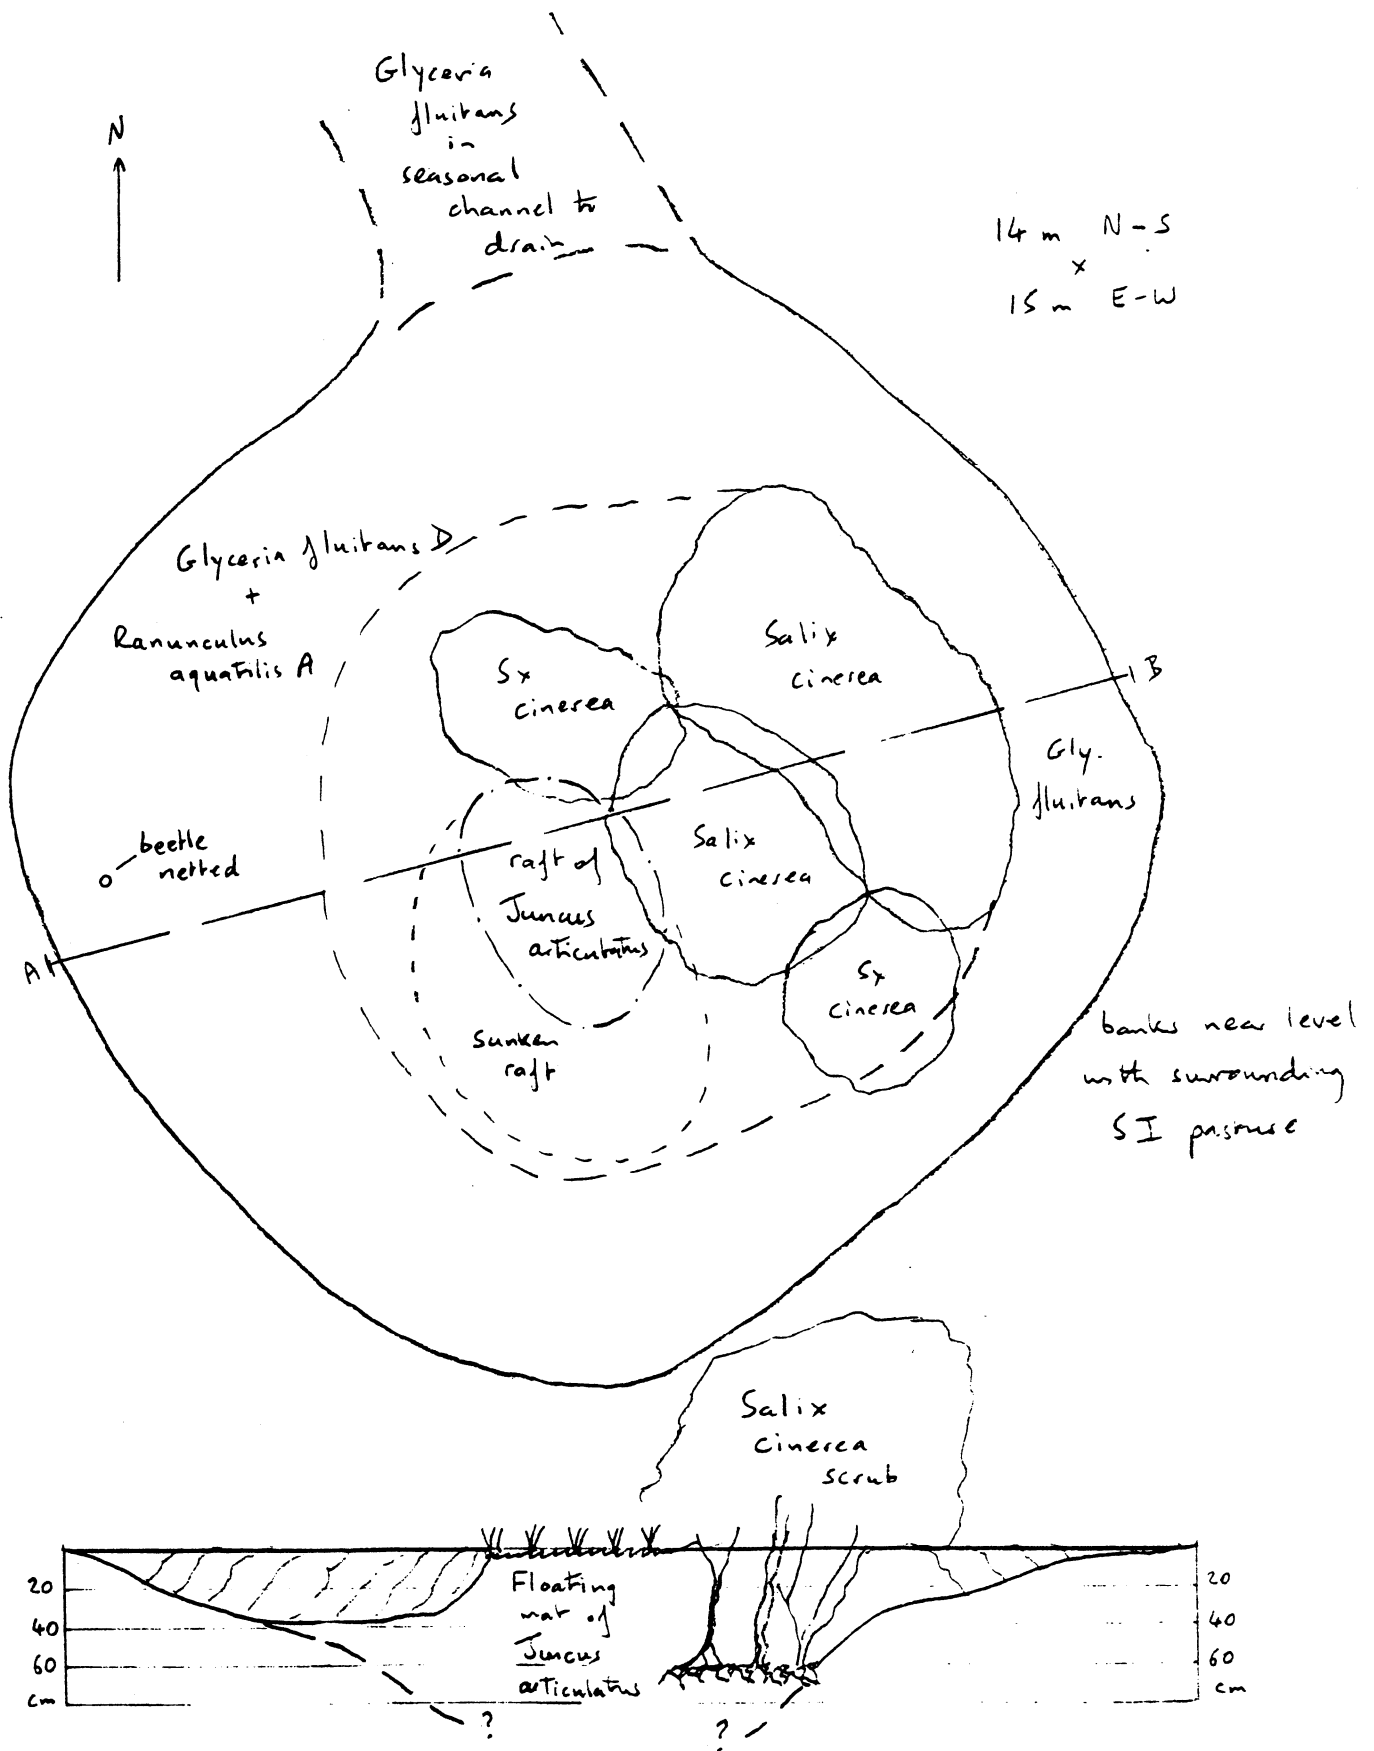 Glyceria
fluitans
in
seasonal
channel to
drain
N
14 m N-S
x
15 m E-W
Glyceria fluitans D
+
Ranunculus
aquatilis A
Sx
cinerea
Salix
cinerea
B
Gly.
fluitans
beetle
netted
raft of
Juncus
articulatus
Salix
cinerea
A
Sx
cinerea
sunken
raft
banks near level
with surrounding
SI pasture
Salix
cinerea
scrub
Floating
mat of
Juncus
articulatus
20
40
60
cm
20
40
60
cm
?
?